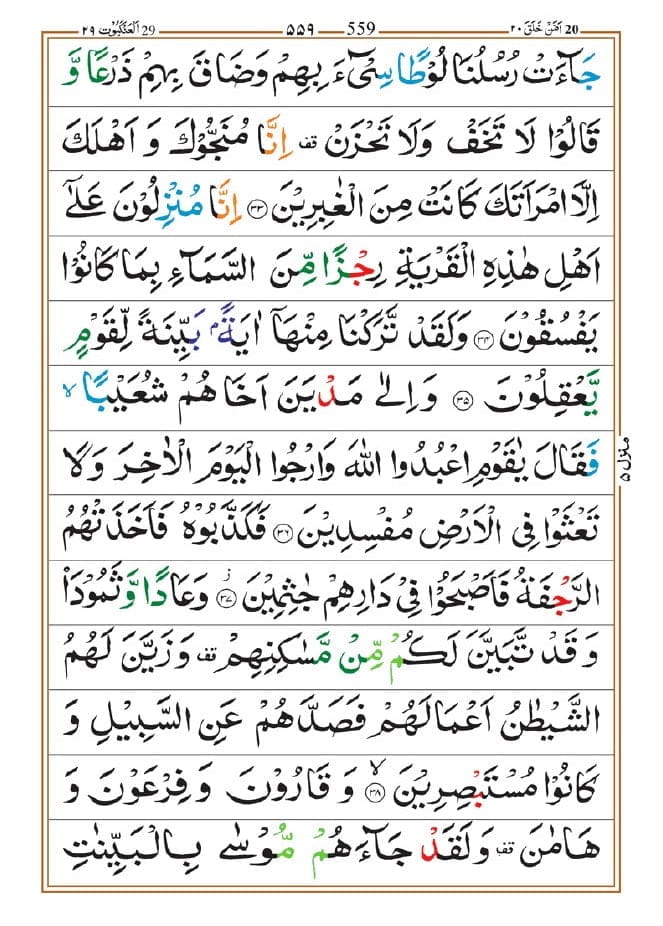 29 اَلْعَنْكَبُوْت ٢٩ 559 ۵۵۹ 20 اَمَّنْ خَلَقَ ٢٠
جَآءَتْ رُسُلُنَا لُوْطًا سِیْٓءَ بِهِمْ وَضَاقَ بِهِمْ ذَرْعًا وَّ
قَالُوْا لَا تَخَفْ وَلَا تَحْزَنْ ۫ اِنَّا مُنَجُّوْكَ وَ اَهْلَكَ
اِلَّا امْرَاَتَكَ كَانَتْ مِنَ الْغٰبِرِیْنَ ۝٣٣ اِنَّا مُنْزِلُوْنَ عَلٰۤی
اَهْلِ هٰذِهِ الْقَرْیَةِ رِجْزًا مِّنَ السَّمَآءِ بِمَا كَانُوْا
یَفْسُقُوْنَ ۝٣٤ وَلَقَدْ تَّرَكْنَا مِنْهَاۤ اٰیَةًۢ بَیِّنَةً لِّقَوْمٍ
یَّعْقِلُوْنَ ۝٣٥ وَاِلٰی مَدْیَنَ اَخَاهُمْ شُعَیْبًا ۙ
فَقَالَ یٰقَوْمِ اعْبُدُوا اللّٰهَ وَارْجُوا الْیَوْمَ الْاٰخِرَ وَلَا
تَعْثَوْا فِی الْاَرْضِ مُفْسِدِیْنَ ۝٣٦ فَكَذَّبُوْهُ فَاَخَذَتْهُمُ
الرَّجْفَةُ فَاَصْبَحُوْا فِیْ دَارِهِمْ جٰثِمِیْنَ ۝٣٧ؗ وَعَادًا وَّثَمُوْدَاۡ
وَقَدْ تَّبَیَّنَ لَكُمْ مِّنْ مَّسٰكِنِهِمْ ۫ وَزَیَّنَ لَهُمُ
الشَّیْطٰنُ اَعْمَالَهُمْ فَصَدَّهُمْ عَنِ السَّبِیْلِ وَ
كَانُوْا مُسْتَبْصِرِیْنَ ۝٣٨ۙ وَقَارُوْنَ وَفِرْعَوْنَ وَ
هَامٰنَ ۫ وَلَقَدْ جَآءَهُمْ مُّوْسٰی بِالْبَیِّنٰتِ
منزل ۵